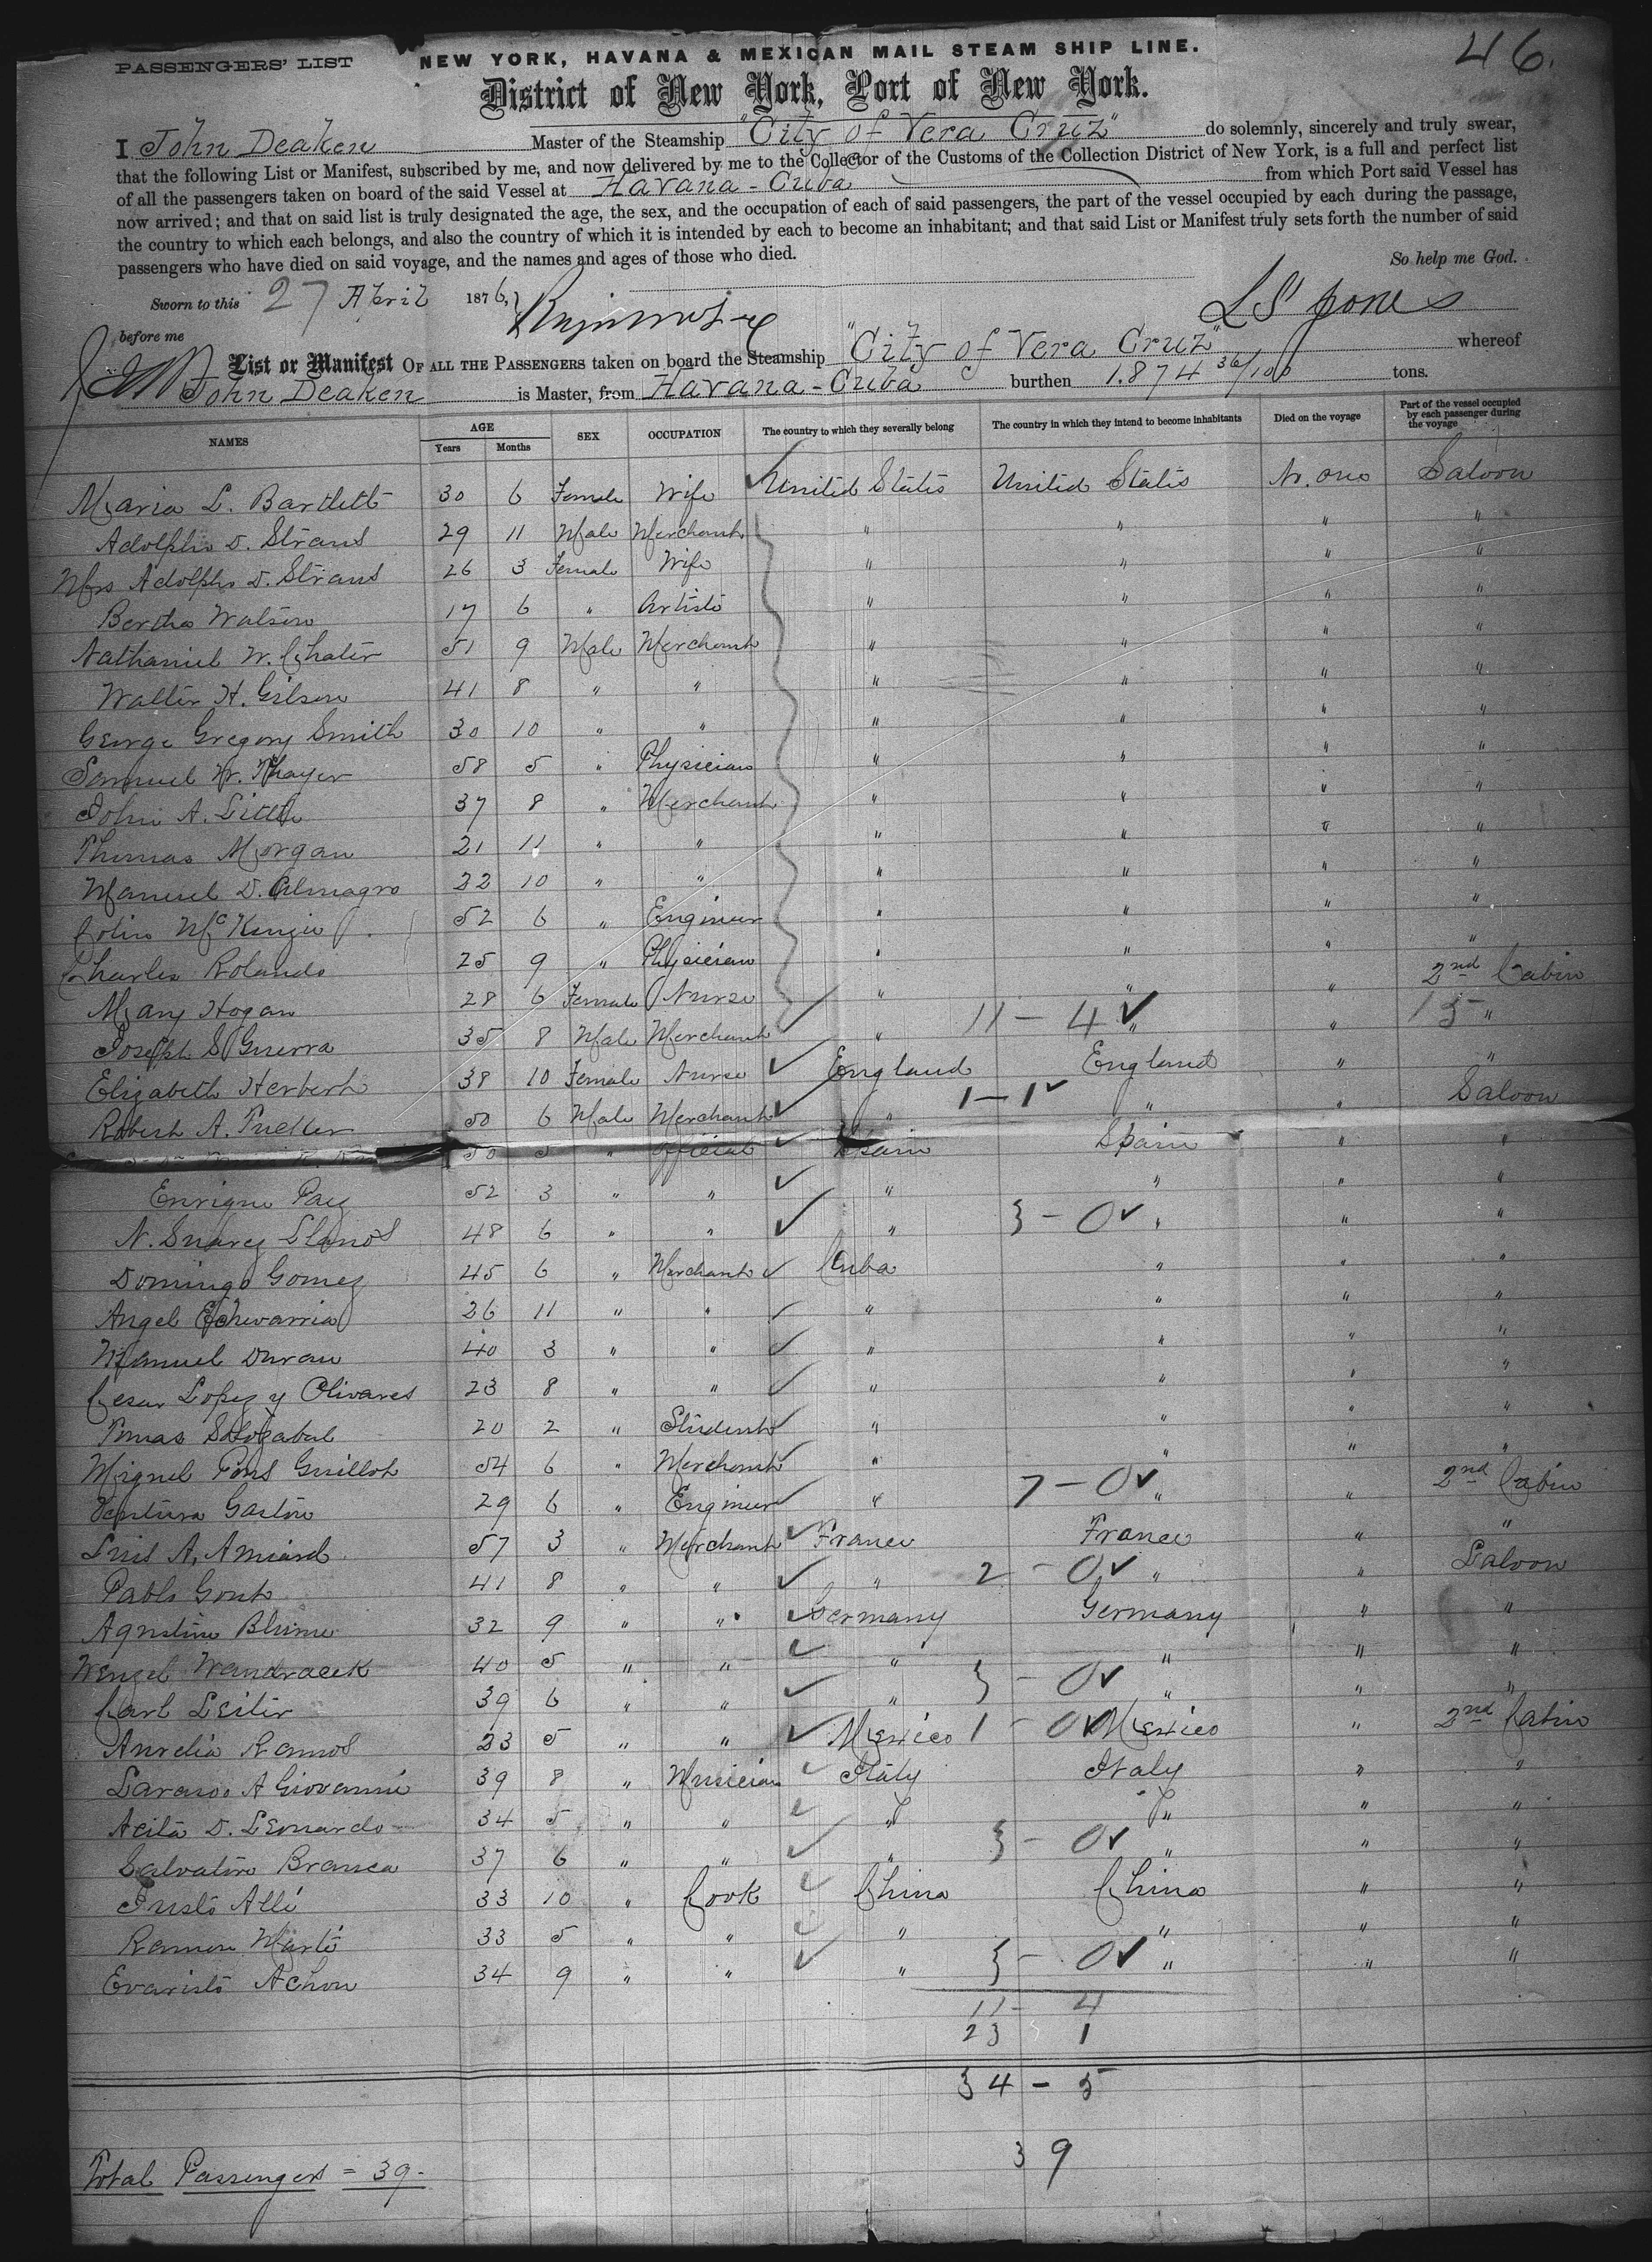 46.
PASSENGERS' LIST NEW YORK, HAVANA & MEXICAN MAIL STEAM SHIP LINE.
District of New York, Port of New York.
I John Deaken Master of the Steamship "City of Vera Cruz" do solemnly, sincerely and truly swear,
that the following List or Manifest, subscribed by me, and now delivered by me to the Collector of the Customs of the Collection District of New York, is a full and perfect list
of all the passengers taken on board of the said Vessel at Havana - Cuba from which Port said Vessel has
now arrived; and that on said list is truly designated the age, the sex, and the occupation of each of said passengers, the part of the vessel occupied by each during the passage,
the country to which each belongs, and also the country of which it is intended by each to become an inhabitant; and that said List or Manifest truly sets forth the number of said
passengers who have died on said voyage, and the names and ages of those who died. So help me God.
Sworn to this 27 April 1876,
before me
List or Manifest OF ALL THE PASSENGERS taken on board the Steamship "City of Vera Cruz" whereof
John Deaken is Master, from Havana - Cuba burthen 1.874 36/100 tons.
NAMES AGE Years Months SEX OCCUPATION The country to which they severally belong The country in which they intend to become inhabitants Died on the voyage Part of the vessel occupied by each passenger during the voyage
Maria L. Bartlett 30 6 Female Wife United States United States No. one Saloon
Adolphe D. Straus 29 11 Male Merchant " " " "
Mrs Adolphe D. Straus 26 3 Female Wife " " " "
Bertha Watson 17 6 " Artiste " " " "
Nathaniel W. Chater 51 9 Male Merchant " " " "
Walter H. Gilson 41 8 " " " " " "
George Gregory Smith 30 10 " " " " " "
Samuel W. Thayer 58 5 " Physician " " " "
John A. Little 37 8 " Merchant " " " "
Thomas Morgan 21 11 " " " " " "
Manuel D. Almagro 22 10 " " " " " "
Colin McKenzie 52 6 " Engineer " " " "
Charles Rolando 25 9 " Physician " " " "
Mary Hogan 28 6 Female Nurse " " " 2nd Cabin
Joseph S Guerra 35 8 Male Merchant " 11 - 4 " " "
Elizabeth Herbert 38 10 Female Nurse England England " "
Robert A. 50 6 Male Merchant " 1 - 1 " " Saloon
50 5 " Official Spain Spain " "
Enrique Paez 52 3 " " " " " "
N. Suarez Llanos 48 6 " " " 3 - 0 " " "
Domingo Gomez 45 6 " Merchant Cuba " " "
Angel Echevarria 26 11 " " " " " "
Manuel Duran 40 3 " " " " " "
Cesar Lopez y Olivares 23 8 " " " " " "
Tomas 20 2 " Student " " " "
Miguel Pons Guillot 54 6 " Merchant " " " "
Ventura Gaston 29 6 " Engineer " 7 - 0 " " 2nd Cabin
Luis A. Amiard 57 3 " Merchant France France " "
Pablo 41 8 " " " 2 - 0 " " Saloon
Agustine Blume 32 9 " " Germany Germany " "
Wenzel Wandracek 40 5 " " " " " "
Carl Leiter 39 6 " " " 3 - 0 " " "
Aurelio Ramos 23 5 " " Mexico 1 - 0 Mexico " 2nd Cabin
A Giovanni 39 8 " Musician Italy Italy " "
D. Leonardo 34 5 " " " " " "
Salvatore Branca 37 6 " " " 3 - 0 " " "
Justo Alli 33 10 " Cook China China " "
Ramon Marti 33 5 " " " " " "
Evaristo Achon 34 9 " " " 3 - 0 " " "
11 - 4
23 1
34 - 5
39
Total Passengers = 39 -